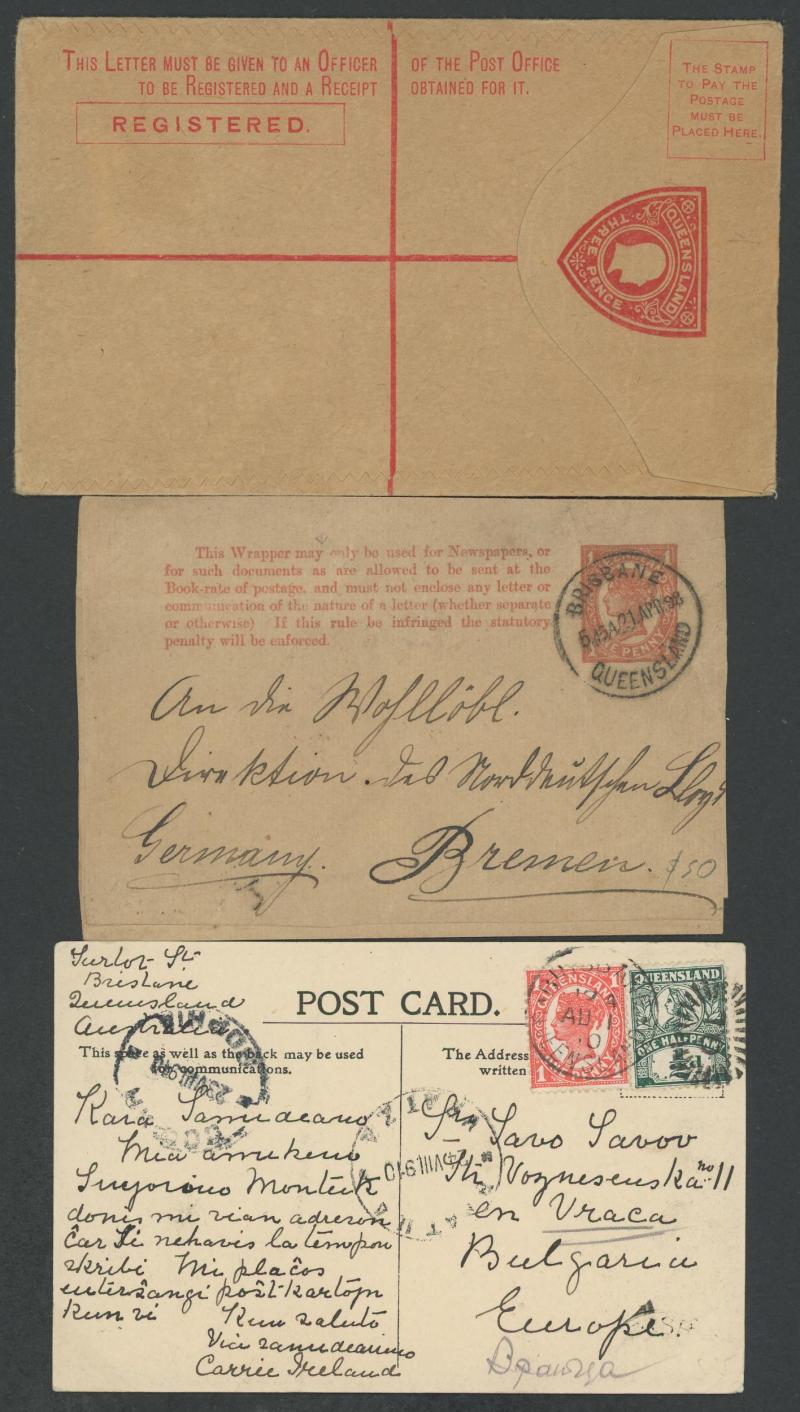 THIS LETTER MUST BE GIVEN TO AN OFFICER OF THE POST OFFICE
TO BE REGISTERED AND A RECEIPT OBTAINED FOR IT.
REGISTERED.
THE STAMP
TO PAY THE
POSTAGE
MUST BE
PLACED HERE.
QUEENSLAND
THREE PENCE
This Wrapper may only be used for Newspapers, or
for such documents as are allowed to be sent at the
Book-rate of postage, and must not enclose any letter or
communication of the nature of a letter (whether separate
or otherwise) If this rule be infringed the statutory
penalty will be enforced.
BRISBANE
5.45A 21 APR 98
QUEENSLAND
ONE PENNY
An die Wohllöbl.
Direktion des Norddeutschen Lloyd
Germany. Bremen. $50
St
Brisbane
Queensland
Australia
POST CARD.
This space as well as the back may be used
for communications.
The Address
written
QUEENSLAND
PENNY
QUEENSLAND
ONE HALFPENNY
VIII 910
VIII 910
Kara Samideano
Mia amikino
Sinjorino
donis mi vian adreson
ĉar ŝi nehavis la tempon
skribi Mi plaĉos
interŝanĝi poŝt-kartojn
kun vi Kun saluto
Via samideanino
Carrie Ireland
Sro Savo Savov
Str Voznesenska no 11
en Vraca
Bulgaria
Europe.
Враица